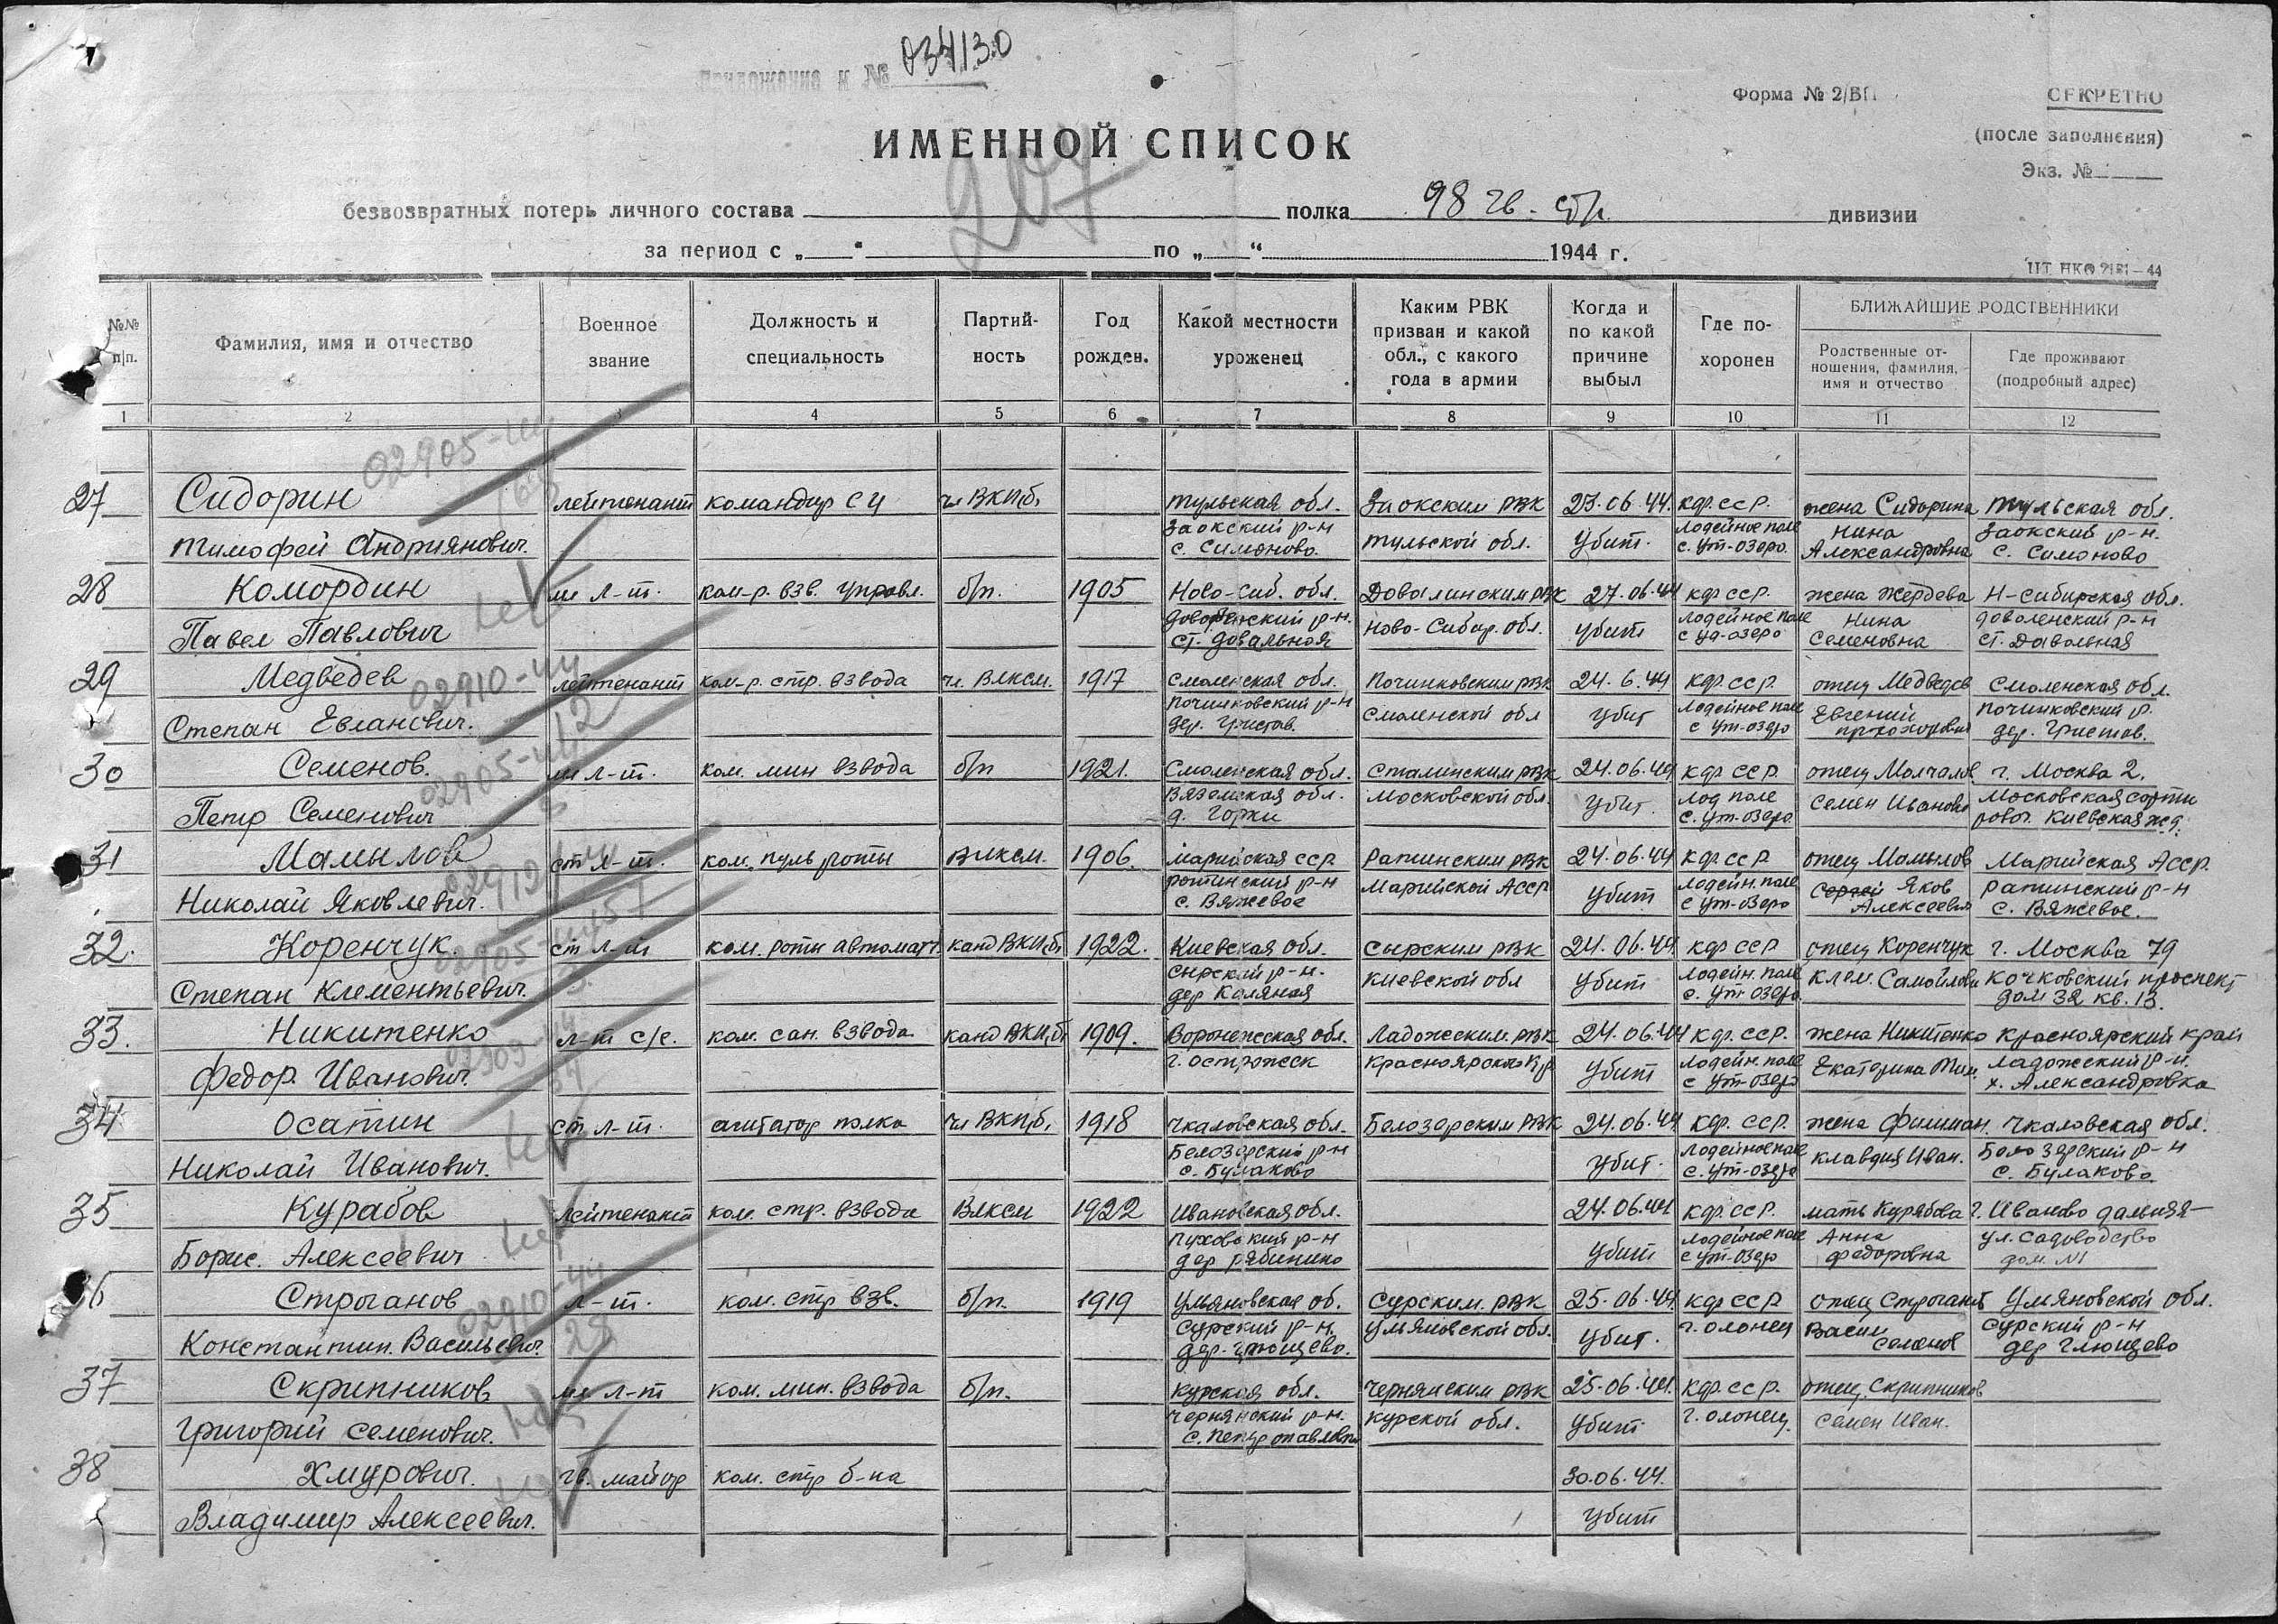 Приложение к № 034130
Форма № 2/БП
СЕКРЕТНО
(после заполнения)
Экз. №
ИМЕННОЙ СПИСОК
207
безвозвратных потерь личного состава полка 98 гв. сд дивизии
за период с „ “ по „ “ 1944 г.
№№ п/п. Фамилия, имя и отчество Военное звание Должность и специальность Партийность Год рожден. Какой местности уроженец Каким РВК призван и какой обл., с какого года в армии Когда и по какой причине выбыл Где похоронен БЛИЖАЙШИЕ РОДСТВЕННИКИ
Родственные отношения, фамилия, имя и отчество Где проживают (подробный адрес)
1 2 3 4 5 6 7 8 9 10 11 12
27 Сидорин лейтенант командир СЧ чл ВКПб, Тульская обл. Заокским РВК 23.06.44. кфсср. жена Сидорина Тульская обл.
Тимофей Андриянович. Заокский р-н с. Симоново. Тульской обл. Убит. Лодейное поле с. Ут-озеро. Нина Александровна Заокский р-н. с. Симоново
28 Комордин мл л-т. ком-р. взв. управл. б/п. 1905 Ново-Сиб. обл. Доволинским рвк 27.06.44 кфсср. жена Жердева Н-Сибирская обл.
Павел Павлович р-н. ст. Довальная Ново-Сибир. обл. убит Лодейное поле Нина Семеновна Доволенский р-н ст. Давольная
29 Медведев лейтенант ком-р. стр. взвода чл. Влксм. 1917 Смоленская обл. Починковским рвк 24.6.44 кфсср. отец Медведев Смоленская обл.
Степан Евланович. Починковский р-н дер. Гристав. Смоленской обл убит Лодейное поле с Ут-озеро Евгений Починковский р. дер. Гристав.
30 Семенов. мл л-т. ком. мин взвода б/п 1921. Смоленская обл. Сталинским рвк 24.06.44 кфсср. отец Молчалов г. Москва 2.
Петр Семенович Вяземская обл. д. Горки Московской обл. Убит. Лод поле с. Ут-озеро Семен Иванов Московская сорти ровоч. Киевская жд.
31 Мамылов ст л-т. ком. пуль роты Влксм. 1906. Марийская сср Ратинским рвк 24.06.44 кфсср отец Мамылов Марийская Асср.
Николай Яковлевич. р-н с. Вяжевое Марийской Асср Убит Лодейн. поле с Ут-озеро Сергей Яков Алексеевич Ратинский р-н с. Вяжевое.
32. Коренчук. ст л-т ком. роты автомат. канд ВКПб 1922. Киевская обл. Сырским рвк 24.06.44 кфсср отец Коренчук г. Москва 79
Степан Клементьевич. Сырский р-н. дер Каляная Киевской обл Убит Лодейн. поле с. Ут озеро Клем. Самойлови Кочковский проспект дом 32 кв. 13.
33. Никитенко л-т с/с. ком. сан. взвода канд ВКПб 1909. Воронежская обл. Ладожским. рвк 24.06.44 кфсср. жена Никитенко Красноярский край
Федор Иванович. г. острожск Красноярского кр Убит Лодейн. поле с Ут-озеро Екатерина Тим. Ладожский р-н. х. Александровка
34 Осатин ст л-т. агитатор полка чл ВКПб, 1918 Чкаловская обл. Белозерским РВК 24.06.44 кфсср. жена Фишман. Чкаловская обл.
Николай Иванович. Белозерский р-н с. Булаково Убит. Лодейное поле с. Ут-озеро Клавдия Иван. Белозерский р-н с. Булаково
35 Курабов лейтенант ком. стр. взвода Влксм 1922 Ивановская обл. 24.06.44 кфсср. мать Курабова г. Иваново дальняя-
Борис. Алексеевич р-н дер Рябинино Убит Лодейное поле с Ут-озеро Анна Федоровна ул. Садоводство дом. №1
36 Строганов л-т. ком. стр взв. б/п. 1919 Ульяновская об. Сурским. рвк 25.06.44. кфсср отец Строганов Ульяновской обл.
Константин. Васильевич. Сурский р-н. Ульяновской обл. Убит. г. Олонец Сурский р-н
37 Скрипников мл л-т ком. мин. взвода б/п. Курская обл. Чернянским рвк 25.06.44. кфсср. отец. Скрипников
Григорий Семенович. Чернянский р-н. Курской обл. Убит. г. Олонец. Семен Иван.
38 Хмурович. гв. майор ком. стр б-на 30.06.44.
Владимир Алексеевич. Убит